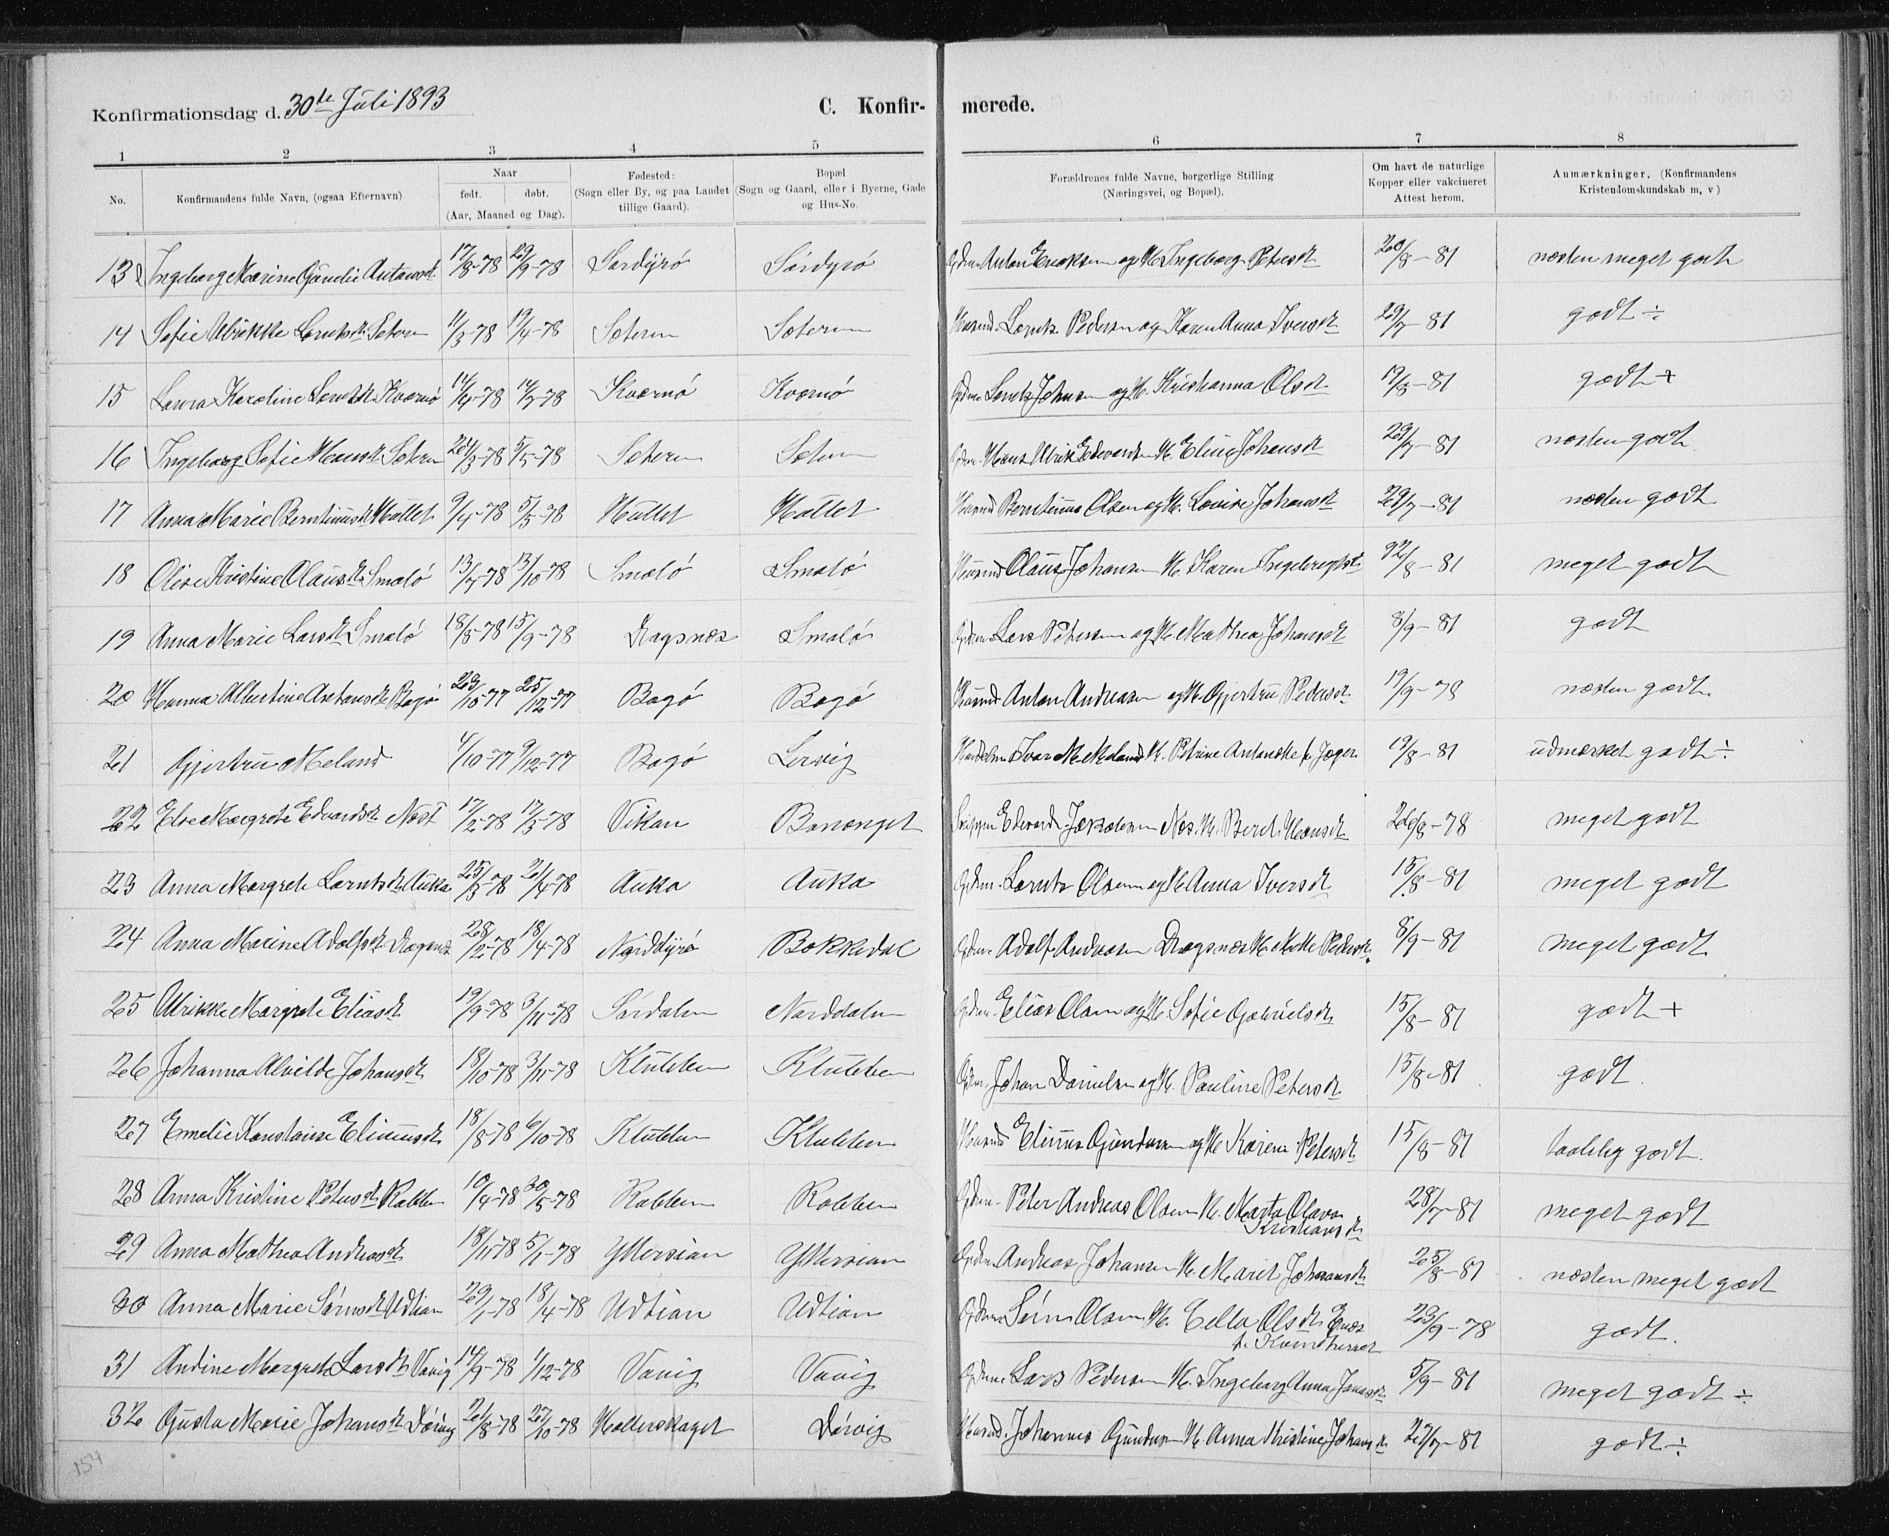 Konfirmationsdag d. 30te Juli 1893 C. Konfir- merede.
1 2 3 4 5 6 7 8
No. Konfirmandens fulde Navn, (ogsaa Efternavn) Naar født. døbt. (Aar, Maaned og Dag). Fødested: (Sogn eller By, og paa Landet tillige Gaard). Bopæl (Sogn og Gaard, eller i Byerne, Gade og Hus-No. Forældrenes fulde Navne, borgerlige Stilling (Næringsvei, og Bopæl). Om havt de naturlige Kopper eller vakcineret Attest herom. Anmærkninger. (Konfirmandens Kristendomskundskab m, v)
13 Ingeborg Marine 17/8-78 29/9-78 Sørdyrø Sørdyrø Gdm. Anton og H. Ingeborg Petersdt. 20/8-81 næsten meget godt
14 Sofie Ulrikke Lorntsdt. Sætern 11/3-78 19/4-78 Sætern Sætern Lorntz Pedersen og Karen Anna Iversdt 29/7-81 godt ÷
15 Laura Karoline Lorntsdt. Kværnø 14/4-78 Kværnø Kværnø Gdm. Lorntz Johnsen og H. Kristianna Olsdt godt +
16 Ingeborg Sofie Hansdt. Sætern 5/5-78 Sætern Sætern Gdm. Hans Ulrik Edvardsen H. Eline Johansdt 29/7-81 næsten godt
17 Anna Marie Berntinusdt. Hallet 9/4-78 5/5-78 Hallet Hallet Husmd Berntinus Olsen og H. Lovise Johansdt 29/7-81 næsten godt
18 Olise Kristine Olausdt. Smølø 13/7-78 13/10-78 Smølø Smølø Husmd Olaus Johansen H. Karen Ingebregtsdt 22/8-81 meget godt
19 Anna Marie Larsdt. Smølø 18/8-78 15/9-78 Dragsnæs Smølø Gdm. Lars Petersen og H. Mathea Johansdt 8/9-81 godt
20 Hanna Albertine Antonsdt. Bogø 23/10-77 25/12-77 Bogø Bogø Husmd Anton Andreasen og H. Gjertru Pedersdt 19/9-78 næsten godt.
21 Gjertru Meland 4/10-77 9/12-77 Bogø Lervig Ivar M. Meland H. Petrine f. Jæger 19/8-81 udmærket godt ÷
22 Else Margrete Edvardsdt 17/2-78 17/3-78 Vikan Edvard Jakobsen Næs. H. Beret Hansdt 26/8-78 meget godt
23 Anna Margrete Lorntsdt. Auka 25/3-78 21/4-78 Auka Auka Gdm. Lorntz Olsen og H. Anna Iversdt 15/8-81 meget godt
24 Anna Marine Adolfsdt. Dragsnæs 28/2-78 18/4-78 Norddyrø Bokkedal Gdm. Adolf Andreasen Dragsnæs H. Pedersdt. 8/9-81 meget godt
25 Ulrikke Margrete Eliasdt. 19/9-78 3/11-78 Sørdalen Norddalen Gdm. Elias Olsen og H. Sofie Gabrielsdt 15/8-81 godt +
26 Johanna Alvilde Johansdt. 18/10-78 3/11-78 Klubben Klubben Gdm. Johan Danielsen og H. Pauline Petersdt 15/8-81 godt.
27 Emelie Konstanse Elinusdt. 18/8-78 6/10-78 Klubben Klubben Husmd Elinus Gundersen og H. Karen Petersdt. 15/8-81 taalelig godt.
28 Anna Kristine Petersdt. Rabben 10/4-78 30/5-78 Rabben Rabben Gdm. Peter Andreas Olsen H. Marta Olava
Kristiansdt 28/7-81 meget godt
29 Anna Mathea Andreasdt. 18/11-78 Yttersian Yttersian Gdm. Andreas Johansen H. Maret Johansdt. 25/8-81 næsten meget godt
30 Anna Marie Sørensdt. Udtian 29/1-78 18/4-78 Udtian Udtian Gdm. Søren Olsen H. Olsdt. 23/9-78 godt.
31 Andine Margrete Larsdt. Vavig 14/9-78 1/12-78 Vavig Vavig Gdm. Lars Pedersen H. Ingeborg Anna Jonasdt 5/9-81 meget godt ÷
32 Gusta Marie Johansdt. Dørvig 21/8-78 27/10-78 Hallerskaget Dørvig Husmd. Johannes Gundersen H. Anna Kristine Johansdt 27/7-81 godt ÷
154